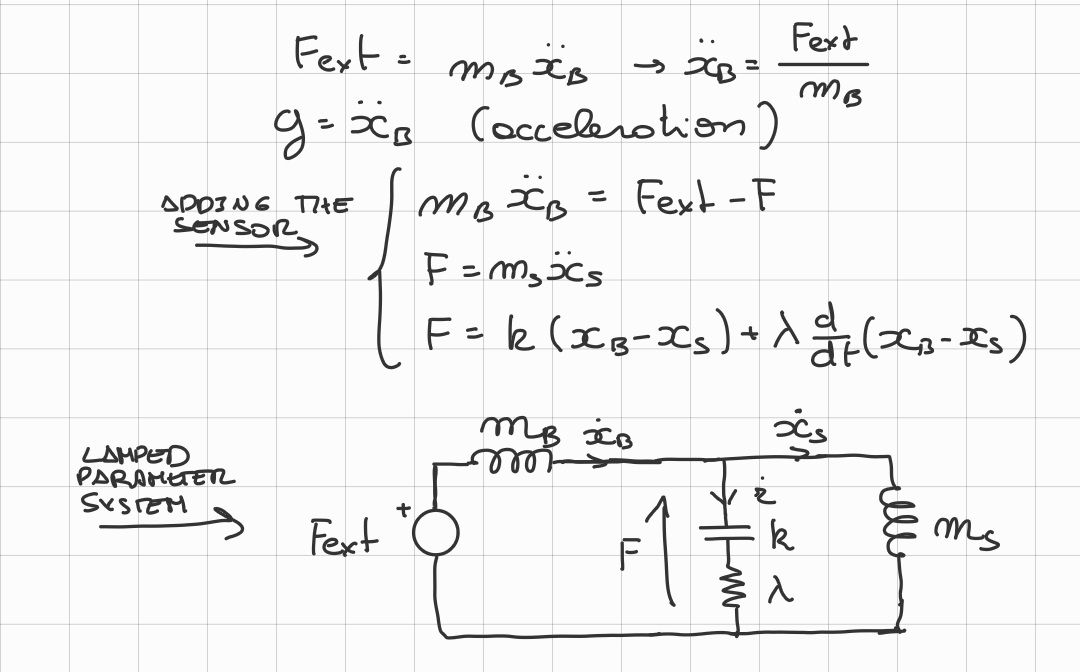 Fext = m_B ẍ_B → ẍ_B = Fext / m_B
g = ẍ_B (acceleration)
ADDING THE
SENSOR
m_B ẍ_B = Fext - F
F = m_s ẍ_s
F = k (x_B - x_s) + λ d/dt (x_B - x_s)
LAMPED
PARAMETER
SYSTEM
m_B ẋ_B
ẋ_s
+
Fext
F
ż
k
λ
m_s